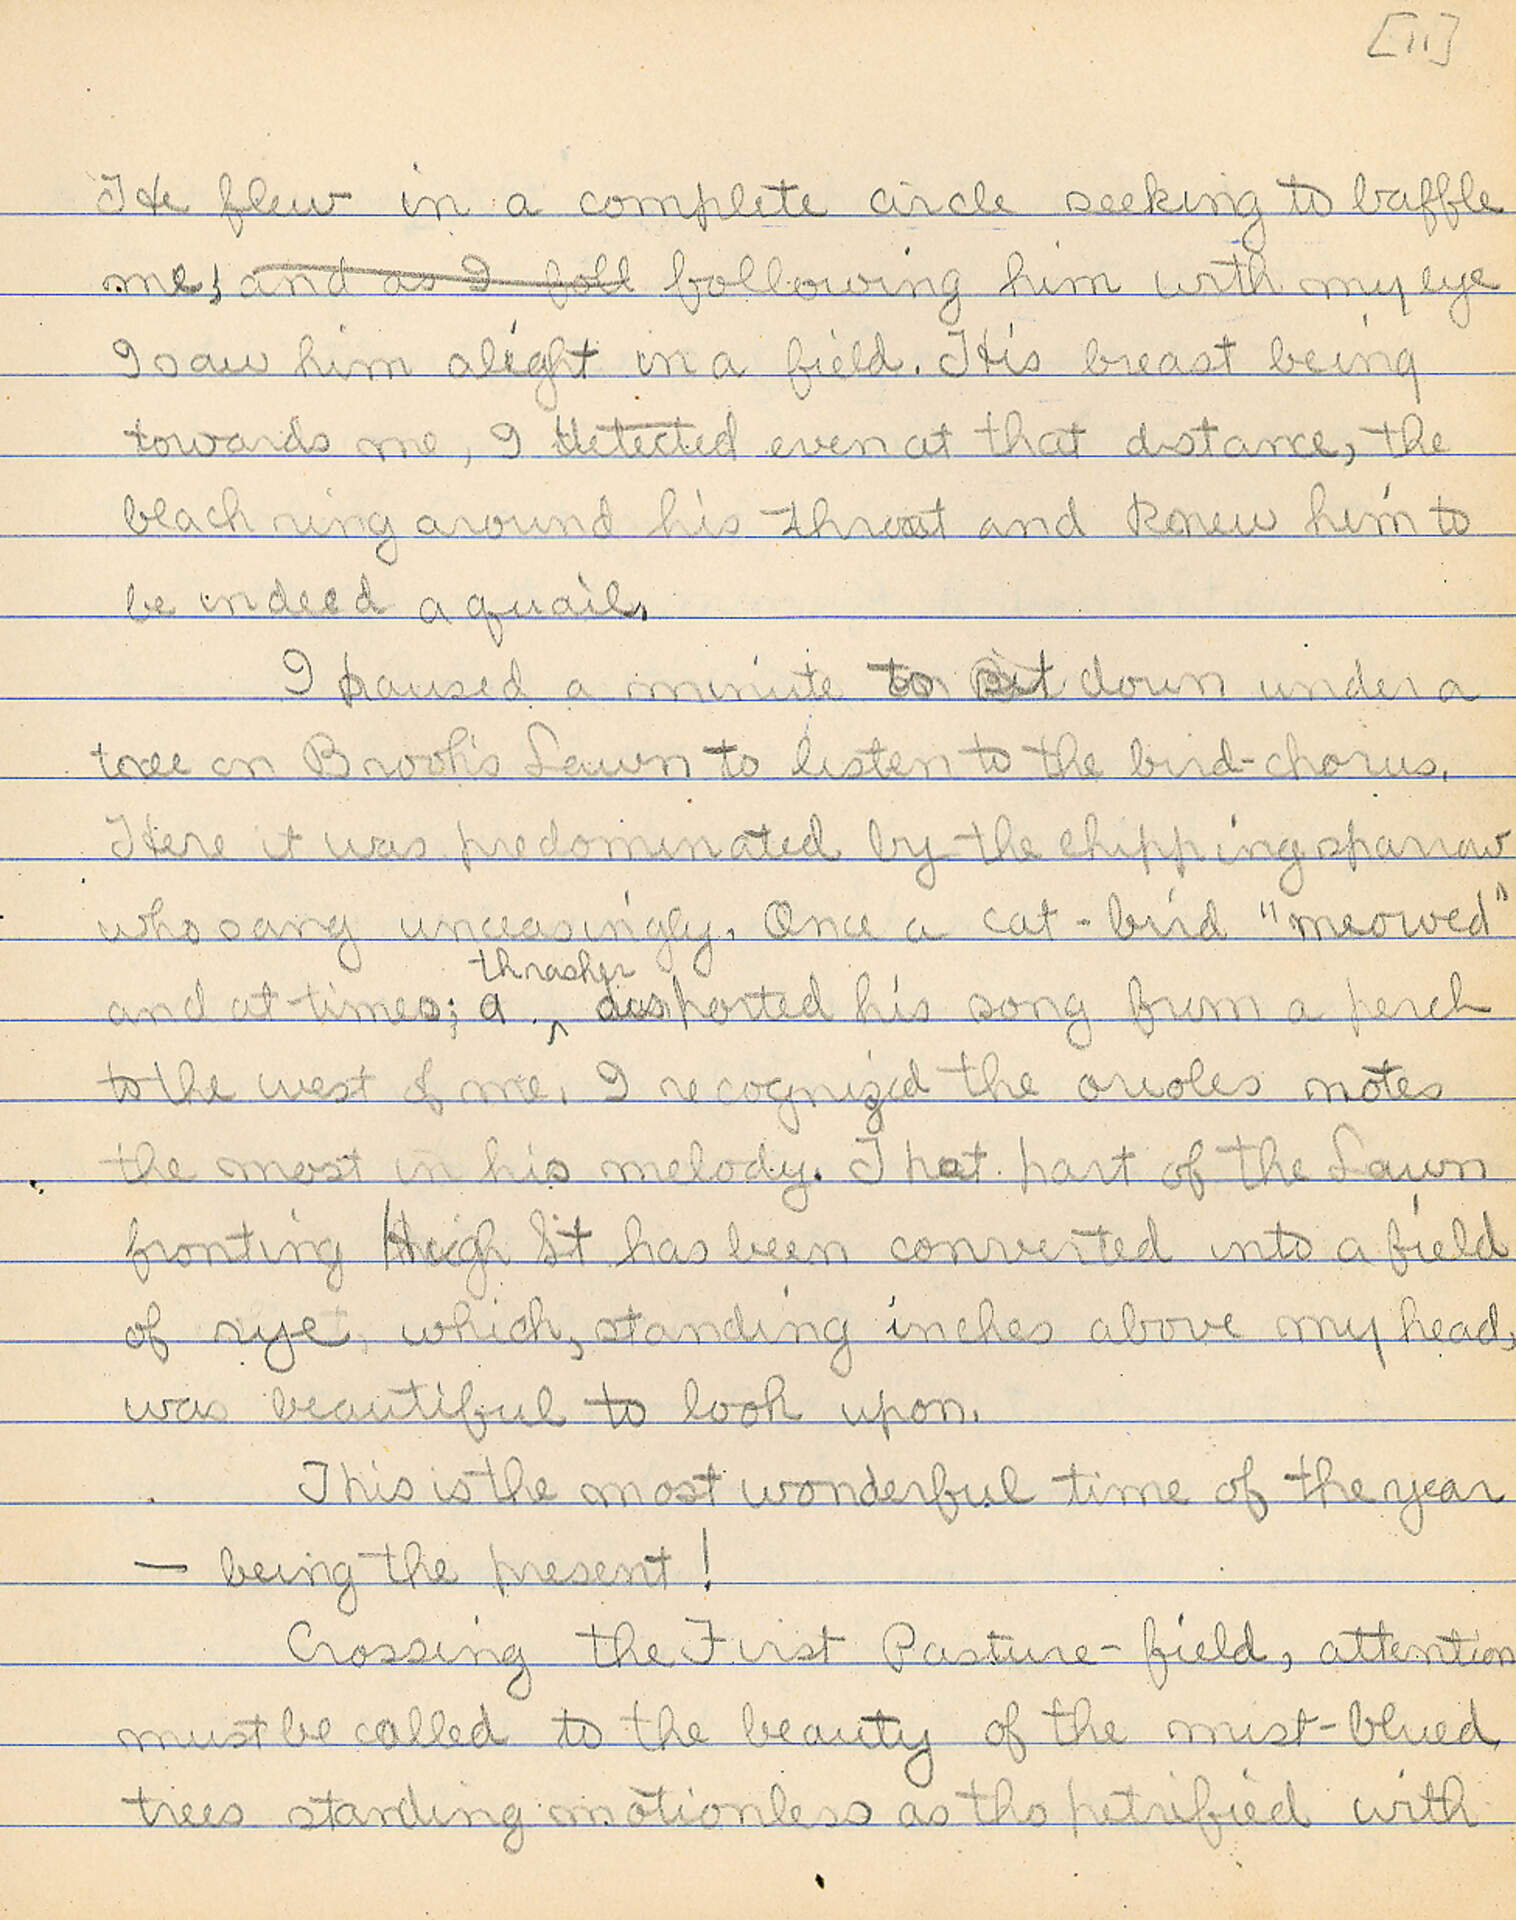 [11]
He flew in a complete circle seeking to baffle
me, and as I foll following him with my eye
I saw him alight in a field. His breast being
towards me, I detected even at that distance, the
black ring around his throat and knew him to
be indeed a quail.
I paused a minute to sit down under a
tree on Brook's Lawn to listen to the bird-chorus.
Here it was predominated by the chipping sparrow
who sang unceasingly. Once a cat-bird "meowed"
thrasher
and at times; a ^ disported his song from a perch
to the west of me. I recognized the orioles notes
the most in his melody. That part of the Lawn
fronting High St has been converted into a field
of rye, which, standing inches above my head,
was beautiful to look upon.
This is the most wonderful time of the year
— being the present!
Crossing the First Pasture-field, attention
must be called to the beauty of the mist-blued
trees standing motionless as tho petrified with